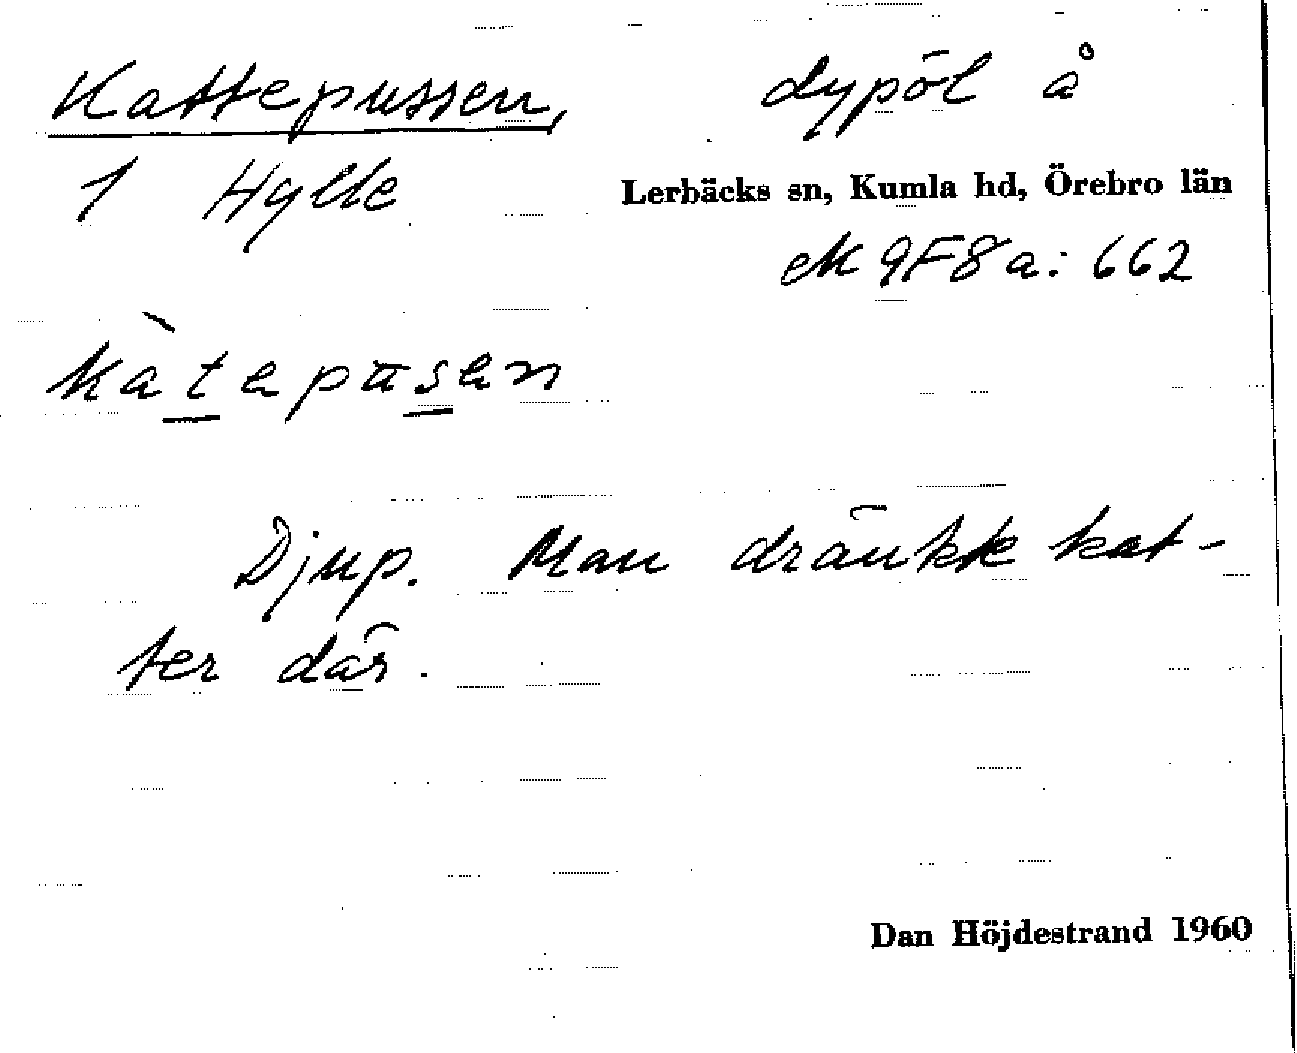 Kattepussen, dypöl å
1 Hylle Lerbäcks sn, Kumla hd, Örebro län
ek 9F8a: 662
kàtepusen
Djup. Man dränkte kat-
ter där.
Dan Höjdestrand 1960